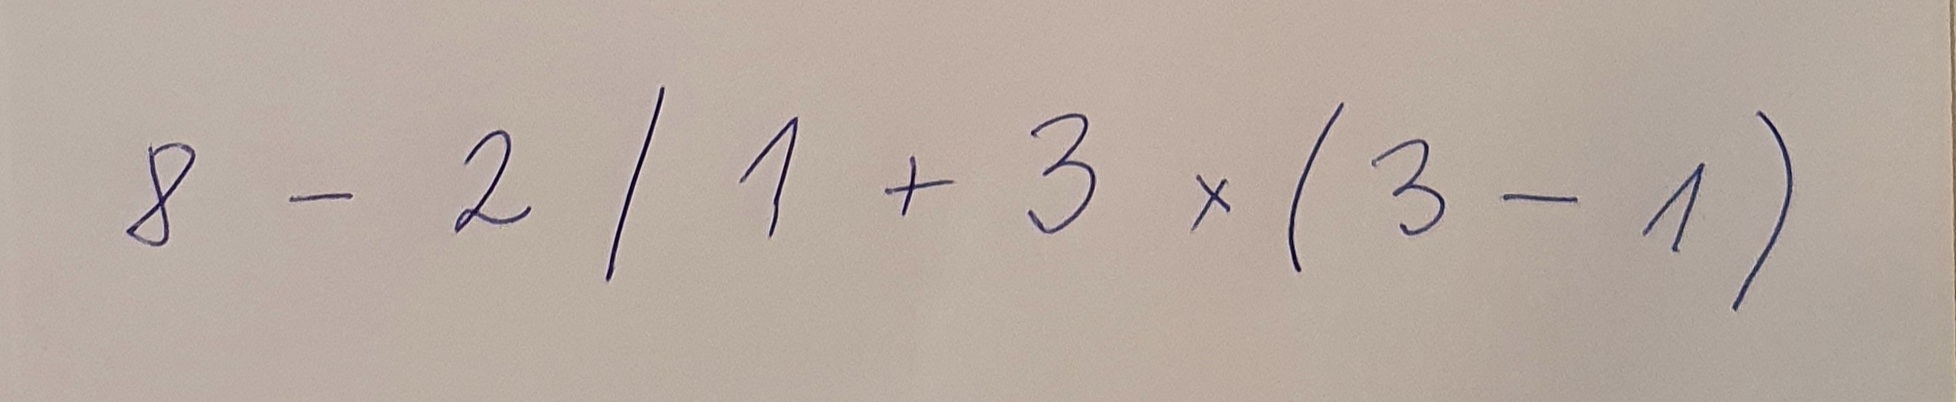 8 - 2 / 1 + 3 × (3 - 1)